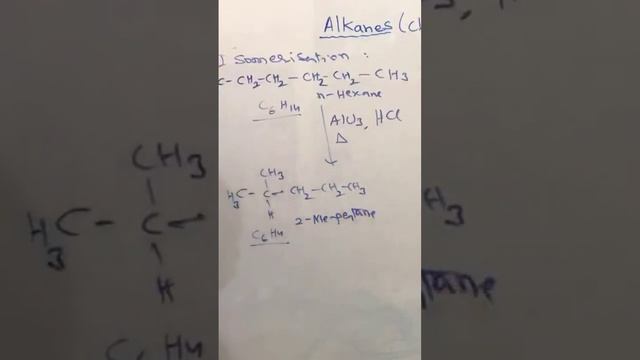 Alkanes (C
Isomerisation :
C - CH₂-CH₂ - CH₂ - CH₂ - CH3
n-Hexane
C₆ H₁₄
AlCl3, HCl
Δ
CH₃
H₃C - C - CH₂-CH₂-CH₃
H
2-Me-pentane
C₆ H14